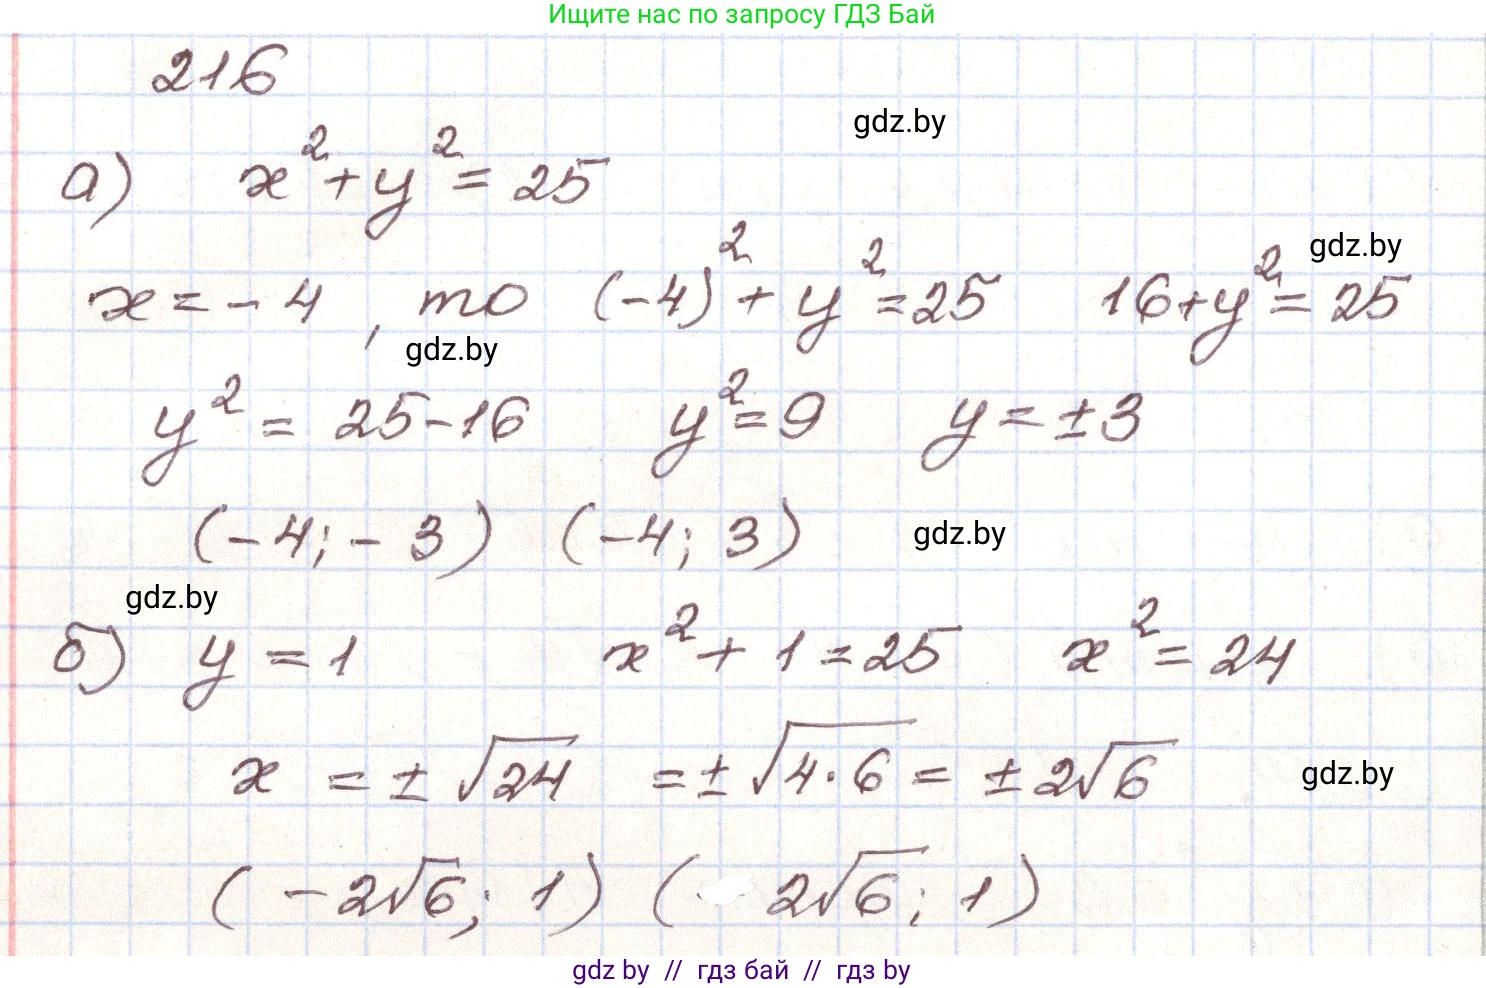 Ищите нас по запросу ГДЗ Бай
216
gdz.by
а) x² + y² = 25
gdz.by
x = -4, то (-4)² + y² = 25 16 + y² = 25
gdz.by
y² = 25 - 16 y² = 9 y = ±3
(-4; -3) (-4; 3) gdz.by
gdz.by
б) y = 1 x² + 1 = 25 x² = 24
x = ±√24 = ±√4·6 = ±2√6 gdz.by
(-2√6; 1) (2√6; 1)
gdz by // гдз бай // гдз by